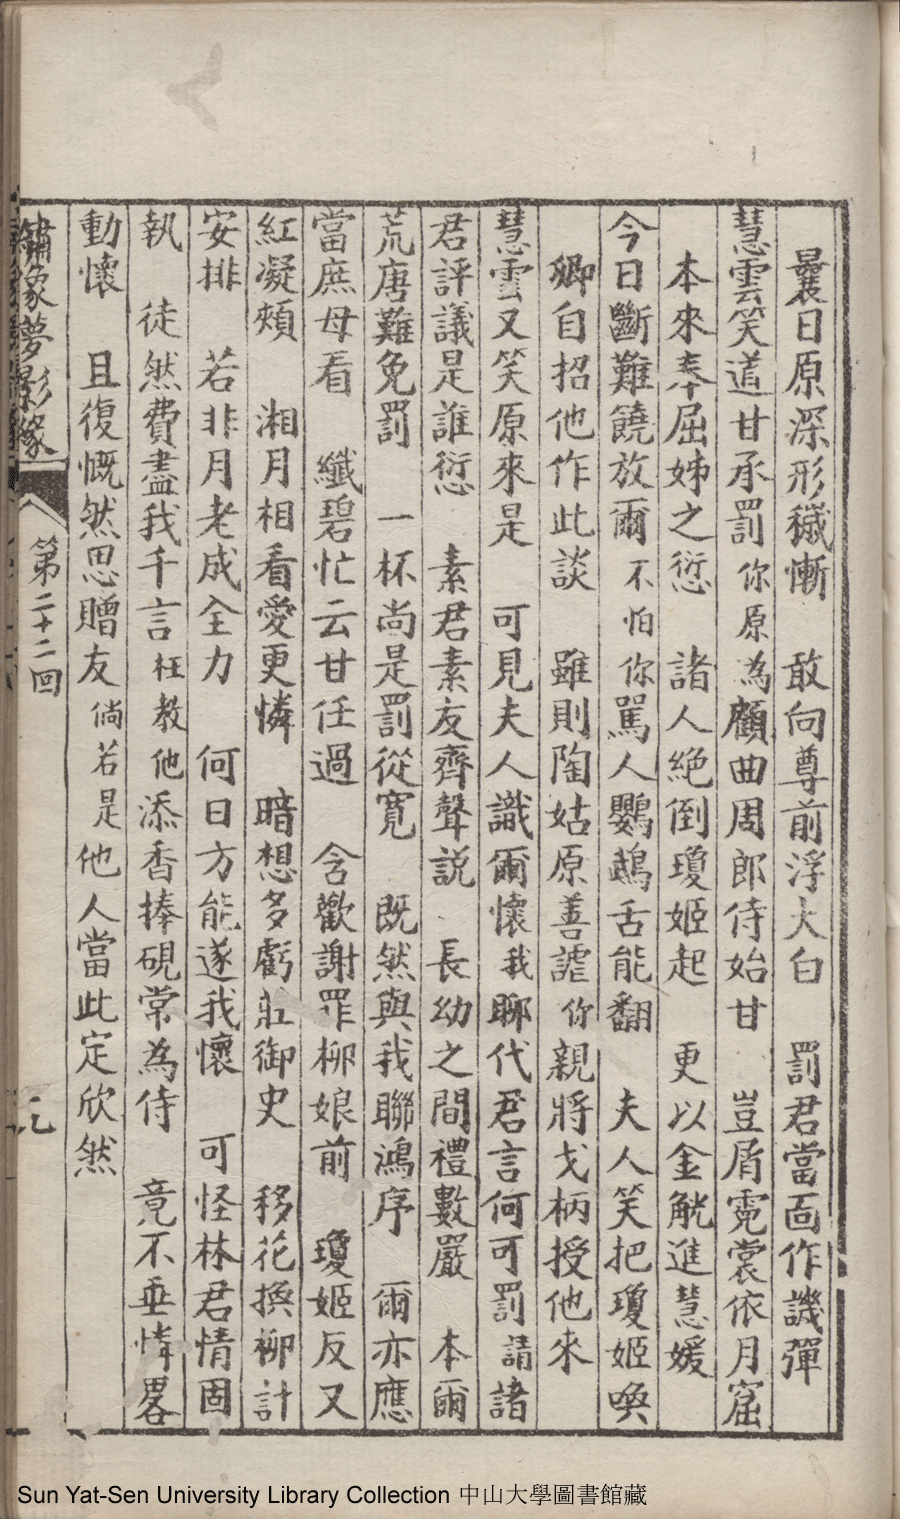 曩日原深形穢慚　敢向尊前浮大白　罰君當面作譏彈
慧雲笑道甘承罰你原為顧曲周郎侍始甘　豈屑霓裳依月窟
本來奉屈姊之愆　諸人絶倒瓊姬起　更以金觥進慧媛
今日斷難饒放爾不怕你罵人鸚鵡舌能翻　夫人笑把瓊姬喚
卿自招他作此談　雖則陶姑原善謔你親將戈柄授他來
慧雲又笑原來是　可見夫人識爾懷我聊代君言何可罰請諸
君評議是誰愆　素君素友齊聲説　長幼之間禮數嚴　本爾
荒唐難免罰　一杯尚是罰從寬　既然與我聯鴻序　爾亦應
當庶母看　纖碧忙云甘任過　含歡謝罪柳娘前　瓊姬反又
紅凝頰　湘月相看愛更憐　暗想多虧莊御史　移花換柳計
安排　若非月老成全力　何日方能遂我懷　可怪林君情固
執　徒然費盡我千言枉教他添香捧硯常為侍　竟不垂憐畧
動懷　且復慨然思贈友倘若是他人當此定欣然
繡像夢影緣　第二十二回
Sun Yat-Sen University Library Collection 中山大學圖書館藏